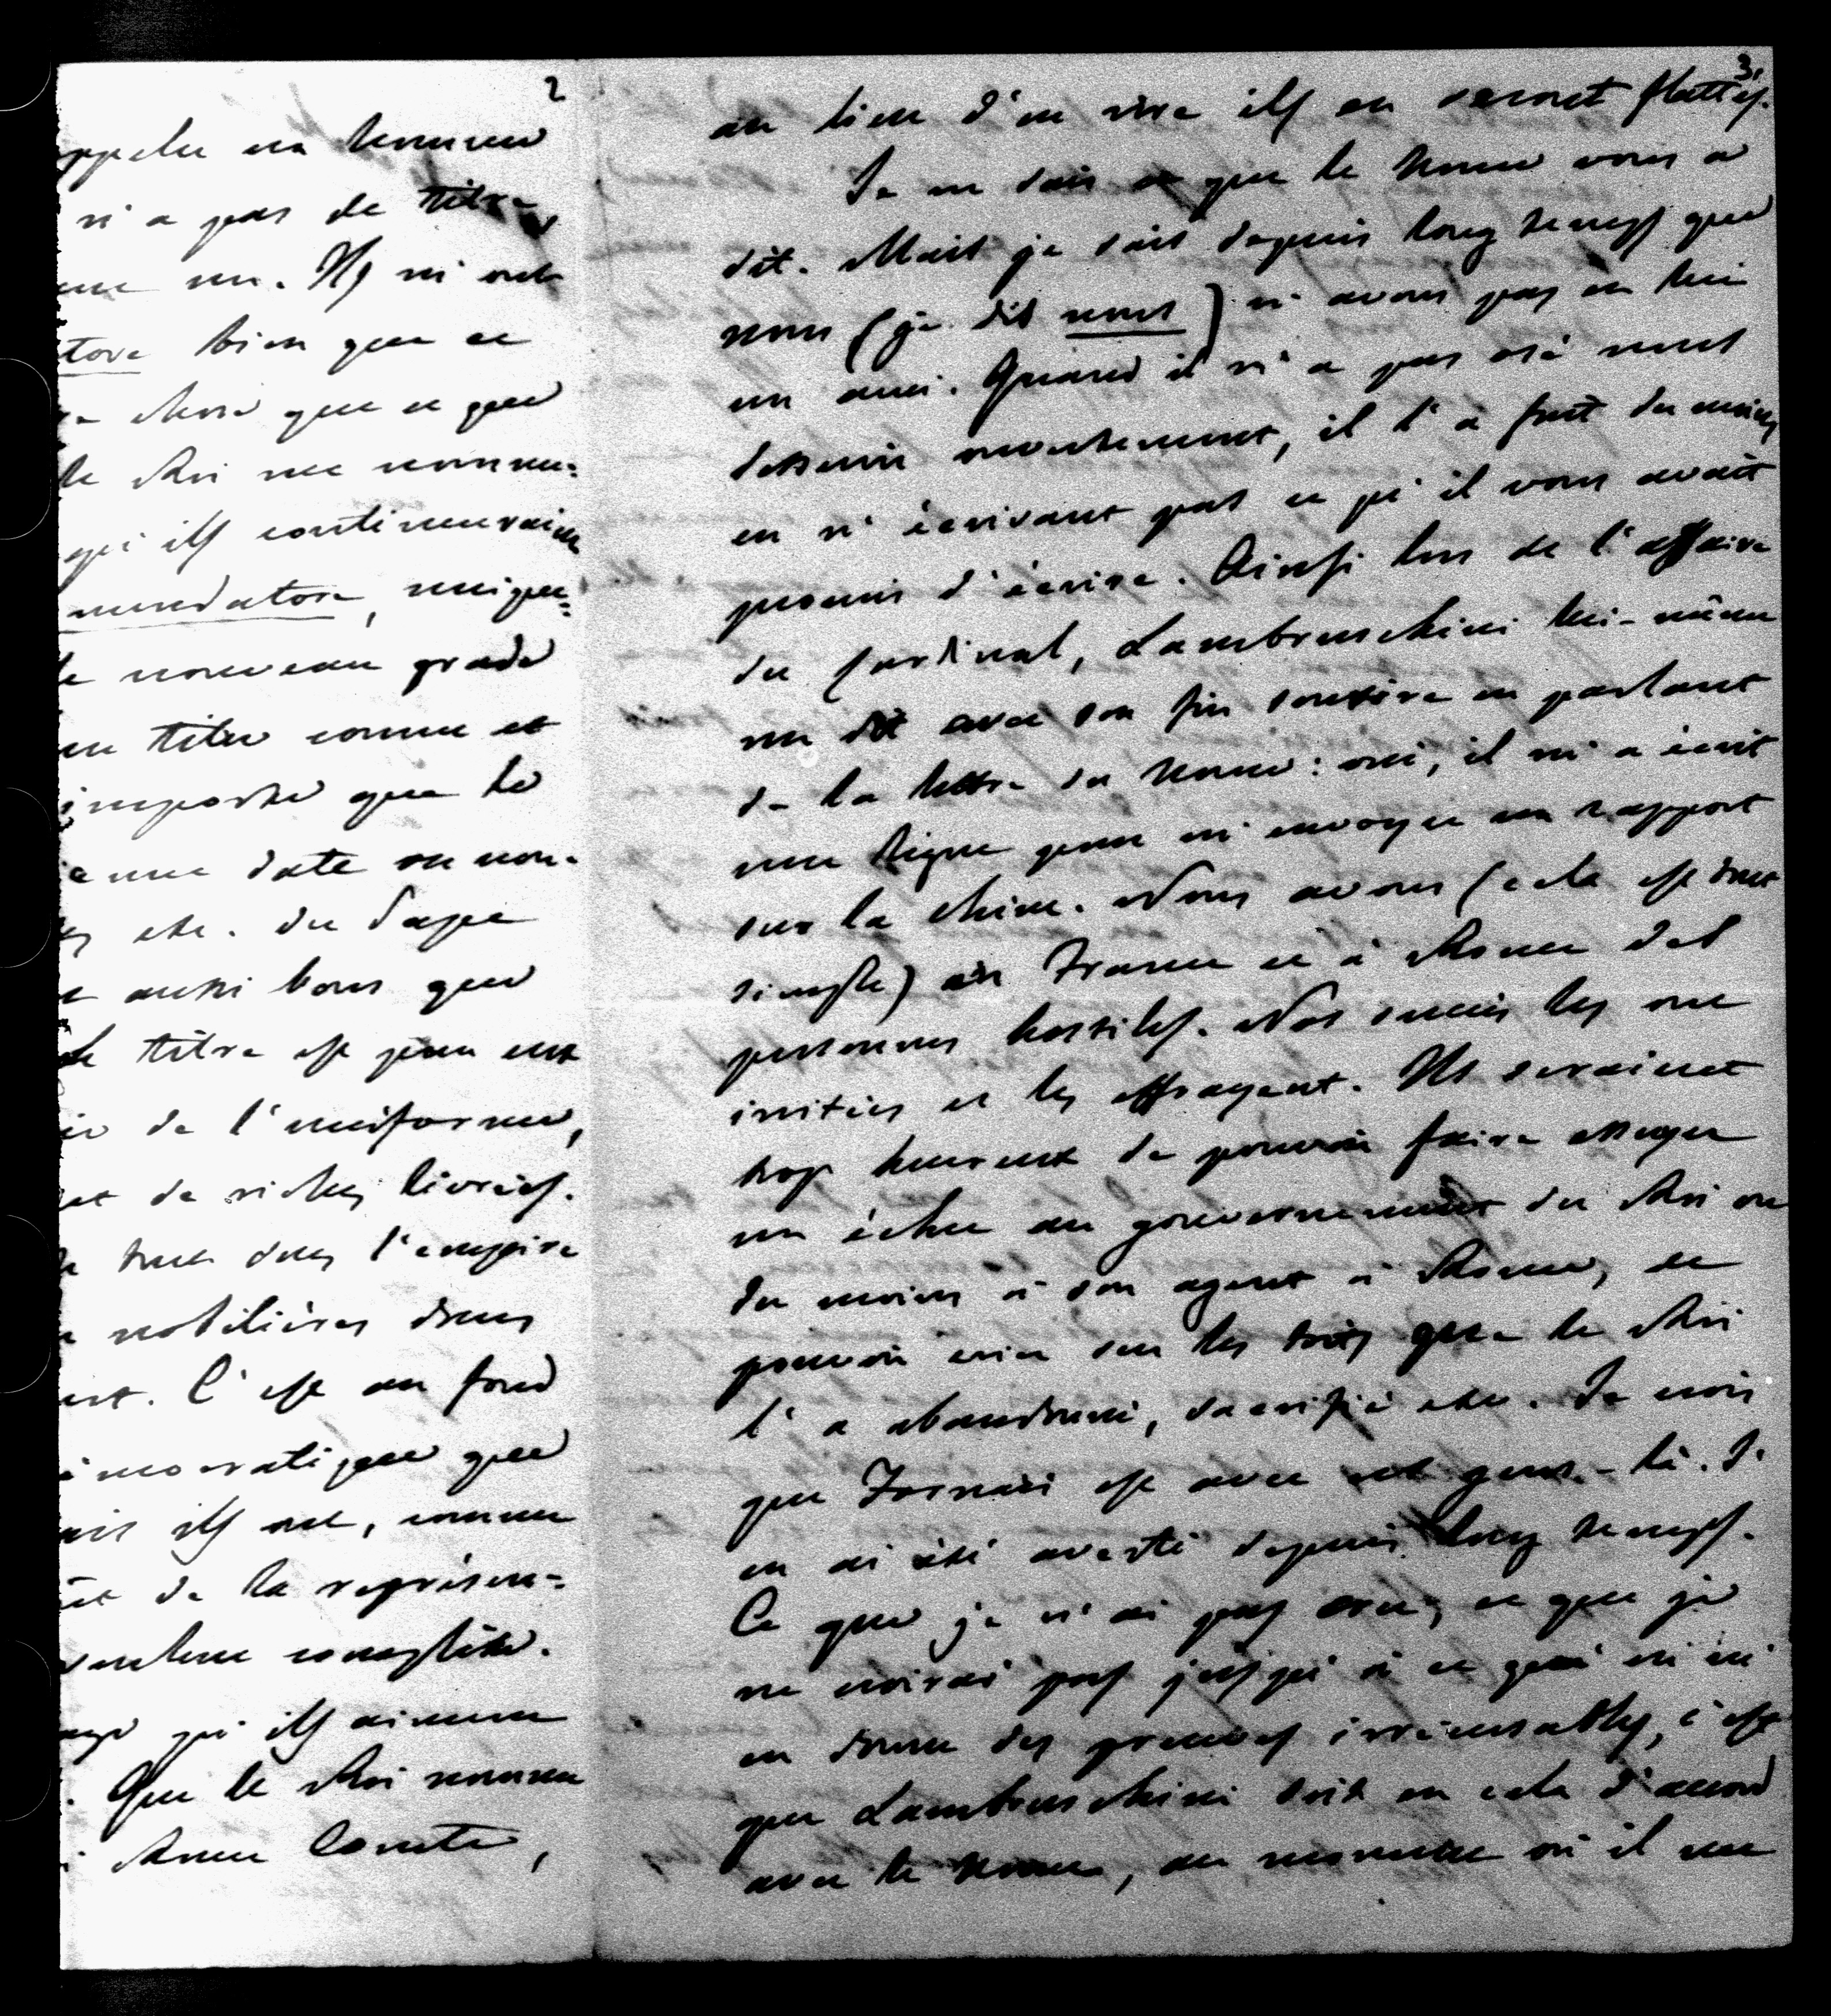 2
appeler un homme
n'a pas de titre
une un. Ils m'ont
tore bien que ce
chose que ce que
le Roi me nomme-
qu'ils continueraient
mendatore, unique-
le nouveau grade
un titre comme et
importe que le
une date ou non.
etc. du Pape
aussi bons que
Le titre est pour eux
de l'uniforme,
et de riches livrées.
tout dans l'empire
nobilières dans
C'est au fond
émocratique que
mais ils ont, comme
et de la représen-
complète.
qu'ils aiment
Que le Roi nomme
Rome Comte,
3.
au lieu d'en rire ils en seront flattés.
Je ne sais ce que le Nonce vous a
dit. Mais je sais depuis long temps que
nous (je dis nous) n'avons pas en lui
un ami. Quand il n'a pas osé nous
desservir ouvertement, il l'a fait du moins
en n'écrivant pas ce qu'il vous avait
promis d'écrire. Ainsi lors de l'affaire
du Cardinal, Lambruschini lui-même
me dit avec son fin sourire en parlant
de la lettre du Nonce: oui, il m'a écrit
une ligne pour m'envoyer un rapport
sur la Chine. Nous avons (cela est tout
simple) en France et à Rome des
personnes hostiles. Nos succès les ont
irritées et les effrayent. Ils seraient
trop heureux de pouvoir faire essuyer
un échec au gouvernement du Roi ou
du moins à son agent à Rome, et
pouvoir crier sur les toits que le Roi
l'a abandonné, sacrifié etc. Je crois
que Fornari est avec ces gens-là. J'
en ai été averti depuis long temps.
Ce que je n'ai pas cru, ce que je
ne croirai pas jusqu'à ce qu'on m'
en donne des preuves irrécusables, c'est
que Lambruschini soit en cela d'accord
avec le Nonce, au moment où il me